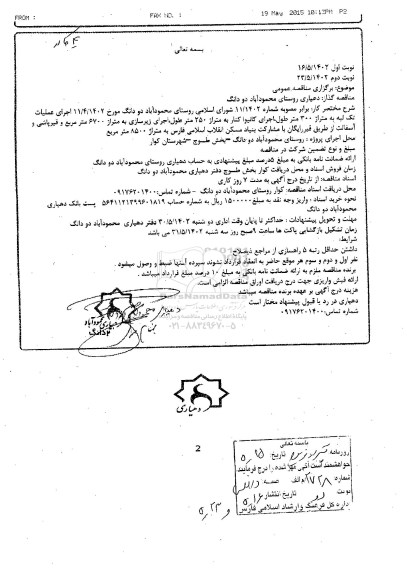 FROM : FAX NO. : 19 May 2015 10:13PM P2
بسمه تعالی
نوبت اول ۱۶/۵/۱۴۰۲
نوبت دوم ۲۳/۵/۱۴۰۲
موضوع: برگزاری مناقصه عمومی
مناقصه گذار: دهیاری روستای محمودآباد دو دانگ
شرح مختصر کار: برابر مصوبه شماره ۱۱/۱۴۰۲ شورای اسلامی روستای محمودآباد دو دانگ مورخ ۱۱/۴/۱۴۰۲ اجرای عملیات
تک لبه به متراژ ۳۰۰ متر طول،اجرای کانیوا کنار به متراژ ۲۵۰ متر طول،اجرای زیرسازی به متراژ ۶۷۰۰ متر مربع و قیرپاشی و
آسفالت از طریق قیررایگان با مشارکت بنیاد مسکن انقلاب اسلامی فارس به متراژ ۸۵۰۰ متر مربع
محل اجرای پروژه : روستای محمودآباد دو دانگ –بخش طسوج –شهرستان کوار
مبلغ و نوع تضمین شرکت در مناقصه
ارائه ضمانت نامه بانکی به مبلغ ۵درصد مبلغ پیشنهادی به حساب دهیاری روستای محمودآباد دو دانگ
زمان فروش اسناد و محل دریافت کوار بخش طسوج دفتر دهیاری محمودآباد دو دانگ
اسناد مناقصه: از تاریخ درج آگهی به مدت ۷ روز کاری
محل دریافت اسناد مناقصه: کوار روستای محمودآباد دو دانگ – شماره تماس:۰۹۱۷۶۲۰۱۴۰۰
نحوه خرید اسناد : واریز وجه نقد به مبلغ ۱۵۰۰۰۰۰ ریال به شماره حساب پست بانک دهیاری
محمودآباد دو دانگ
مهلت و تحویل پیشنهادات : حداکثر تا پایان وقت اداری دو شنبه ۳۰/۵/۱۴۰۲ دفتر دهیاری محمودآباد دو دانگ
زمان تشکیل بازگشایی پاکت ها ساعت ۹صبح روز سه شنبه ۳۱/۵/۱۴۰۲ می باشد
شرایط:
داشتن حداقل رتبه ۵ راهسازی از مراجع ذیصلاح
نفر اول و دوم و سوم هر موقع حاضر به انعقاد قرارداد نشوند سپرده آنها ضبط و وصول میشود.
برنده مناقصه ملزم به ارائه ضمانت نامه بانکی به مبلغ ۱۰ درصد مبلغ قرارداد میباشد .
ارائه فیش واریزی جهت درج دریافت اوراق مناقصه الزامی است.
هزینه درج آگهی بر عهده برنده مناقصه میباشد
دهیاری در رد یا قبول پیشنهاد مختار است
شماره تماس:۰۹۱۷۶۲۰۱۴۰۰
۰۲۱-۸۸۳۴۹۶۷۰-۵
دهیاری
2
باسمه تعالی
روزنامه تاریخ:
خواهشمند است آگهی یکجا شده را درج فرمایید
شماره ۲۷۲۸
نوبت تاریخ انتشار ۵/۱۶ و ۵/۲۳
اداره کل فرهنگ و ارشاد اسلامی فارس